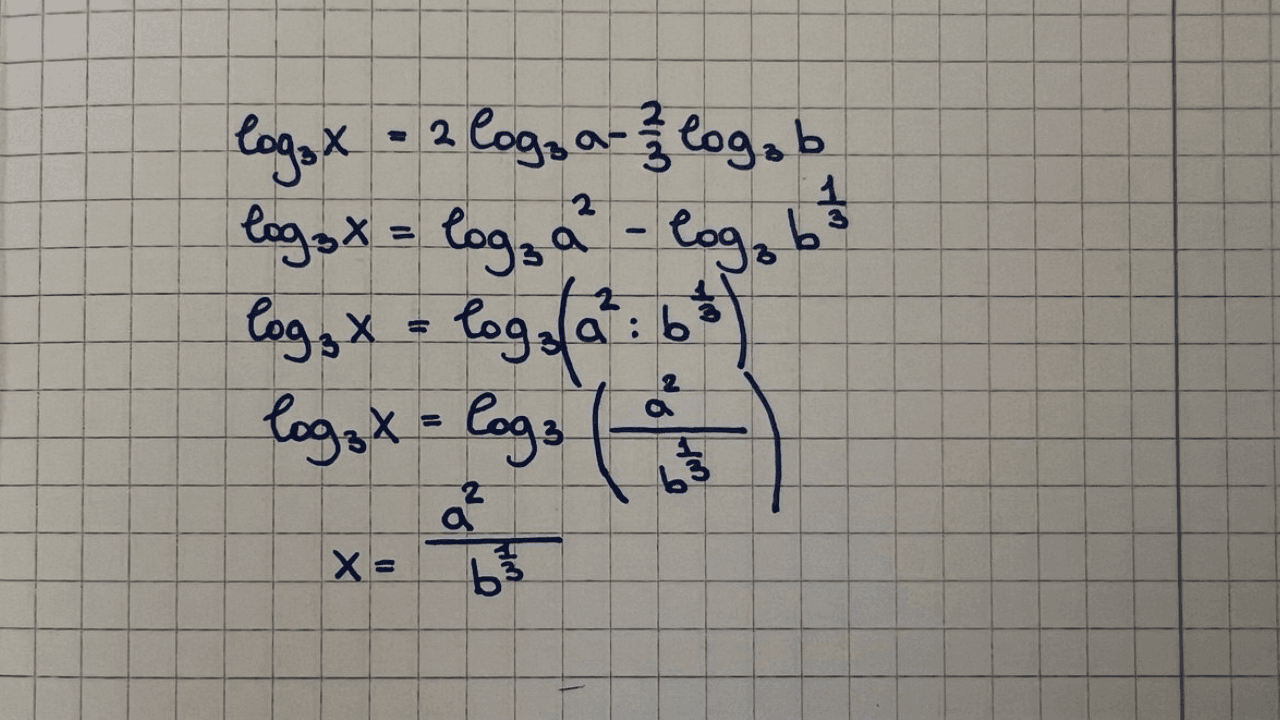 log₃x = 2 log₃a - 2/3 log₃b
log₃x = log₃a² - log₃b^(1/3)
log₃x = log₃(a² : b^(1/3))
log₃x = log₃(a²/b^(1/3))
x = a²/b^(1/3)